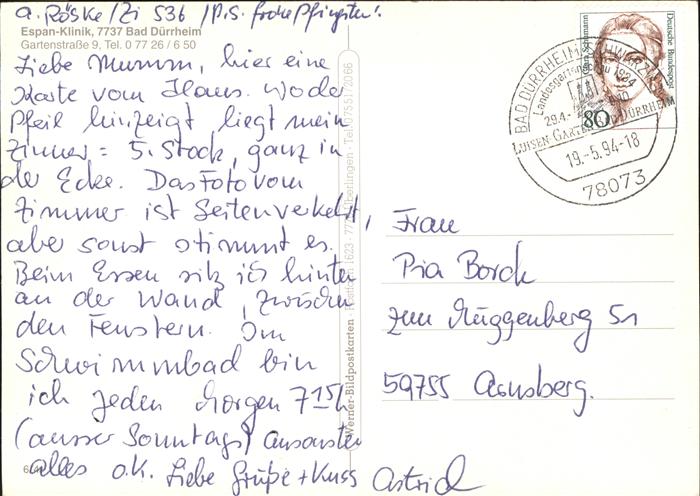 A. Röske / Zi 536 / P.S. frohe Pfingsten!
Espan-Klinik, 7737 Bad Dürrheim
Gartenstraße 9, Tel. 0 77 26 / 6 50
Liebe Mumm, hier eine
Karte vom Haus. Wo der
Pfeil hinzeigt liegt mein
Zimmer = 5. Stock, ganz in
der Ecke. Das Foto vom
Zimmer ist Seitenverkehrt,
aber sonst stimmt es.
Beim Essen sitz ich hinten
an der Wand, zwischen
den Fenstern. Im
Schwimmbad bin
ich jeden Morgen 7 15h
(ausser Sonntags) ansonsten
alles o.K. Liebe Grüße + Kuss Astrid
Werner-Bildpostkarten
Deutsche Bundespost
Clara Schumann
80
BAD DÜRRHEIM SCHWARZW
Landesgartenschau 1994
29.4.-
LUISEN-GARTEN BAD DÜRRHEIM
19.-5.94-18
78073
Frau
Pia Borck
zum Müggenberg 51
59755 Arnsberg.